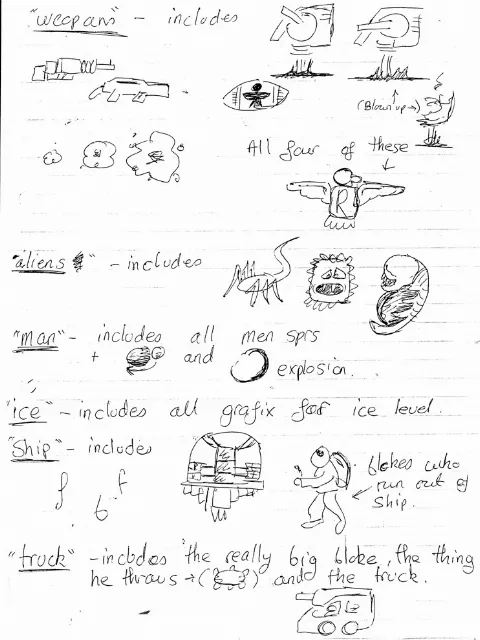 "weapons" - includes
(Blown up →)
All four of these
R
"aliens" - includes
"man" - includes all men sprs
+ and explosion.
"ice" - includes all grafix for ice level.
"Ship" - includes
blokes who
run out of
Ship.
"truck" - includes the really big bloke, the thing
he throws → ( ) and the truck.